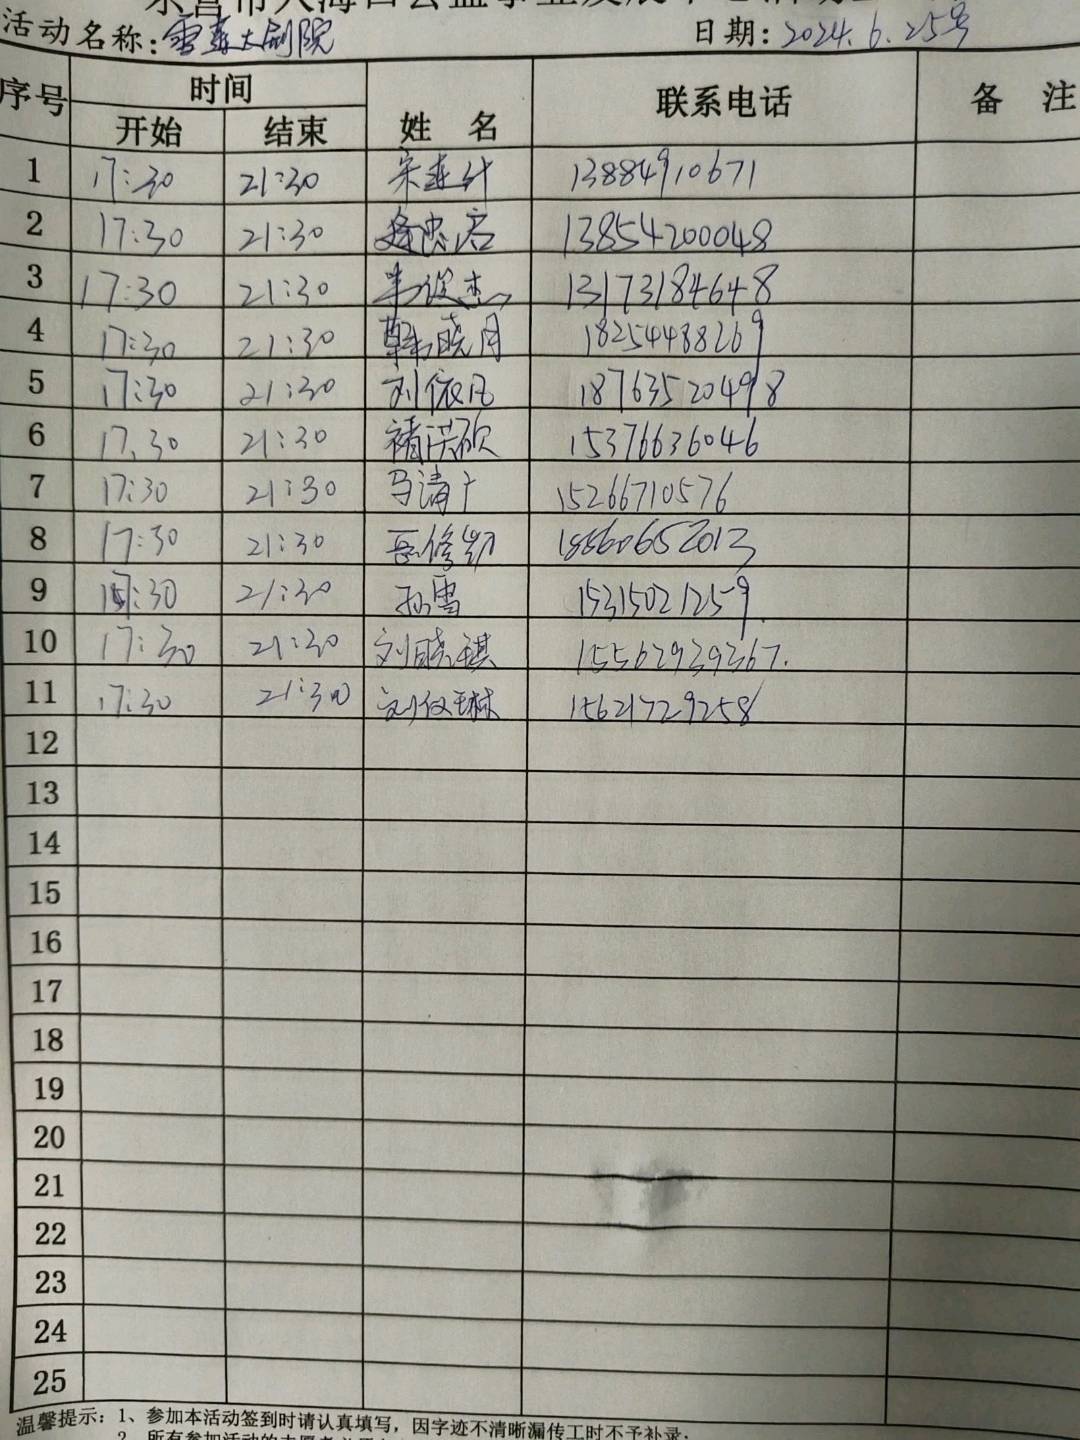 活动名称: 大剧院 日期: 2024.6.25号
序号 时间 姓 名 联系电话 备 注
开始 结束
1 17:30 21:30 13884910671
2 17:30 21:30 13854200048
3 17:30 21:30 13173184648
4 17:30 21:30 韩晓月 18254488269
5 17:30 21:30 刘依凡 18763520498
6 17.30 21:30 褚洪硕 15376636046
7 17:30 21:30 马清广 15266710576
8 17:30 21:30 18560652013
9 17:30 21:30 孙雪 15315021259
10 17:30 21:30 刘晓琪 15562939367.
11 17:30 21:30 刘仪琳 15621729258
12
13
14
15
16
17
18
19
20
21
22
23
24
25
温馨提示: 1、参加本活动签到时请认真填写，因字迹不清晰漏传工时不予补录;